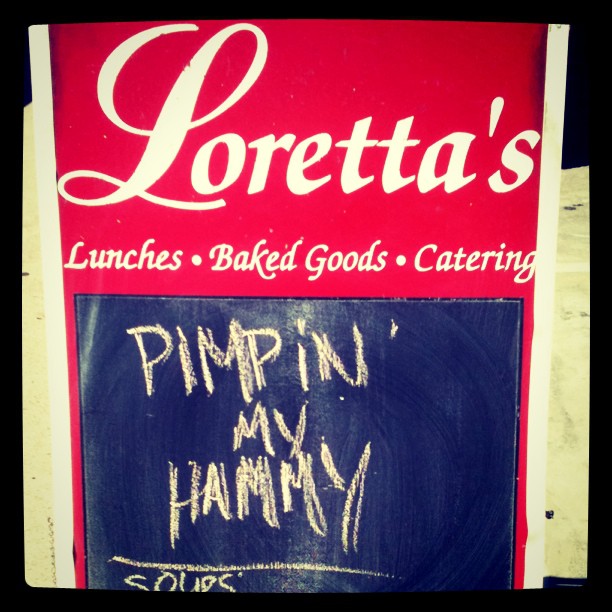 Loretta's
Lunches • Baked Goods • Catering
PIMPiN'
MY
HAMMY
SOUPS: